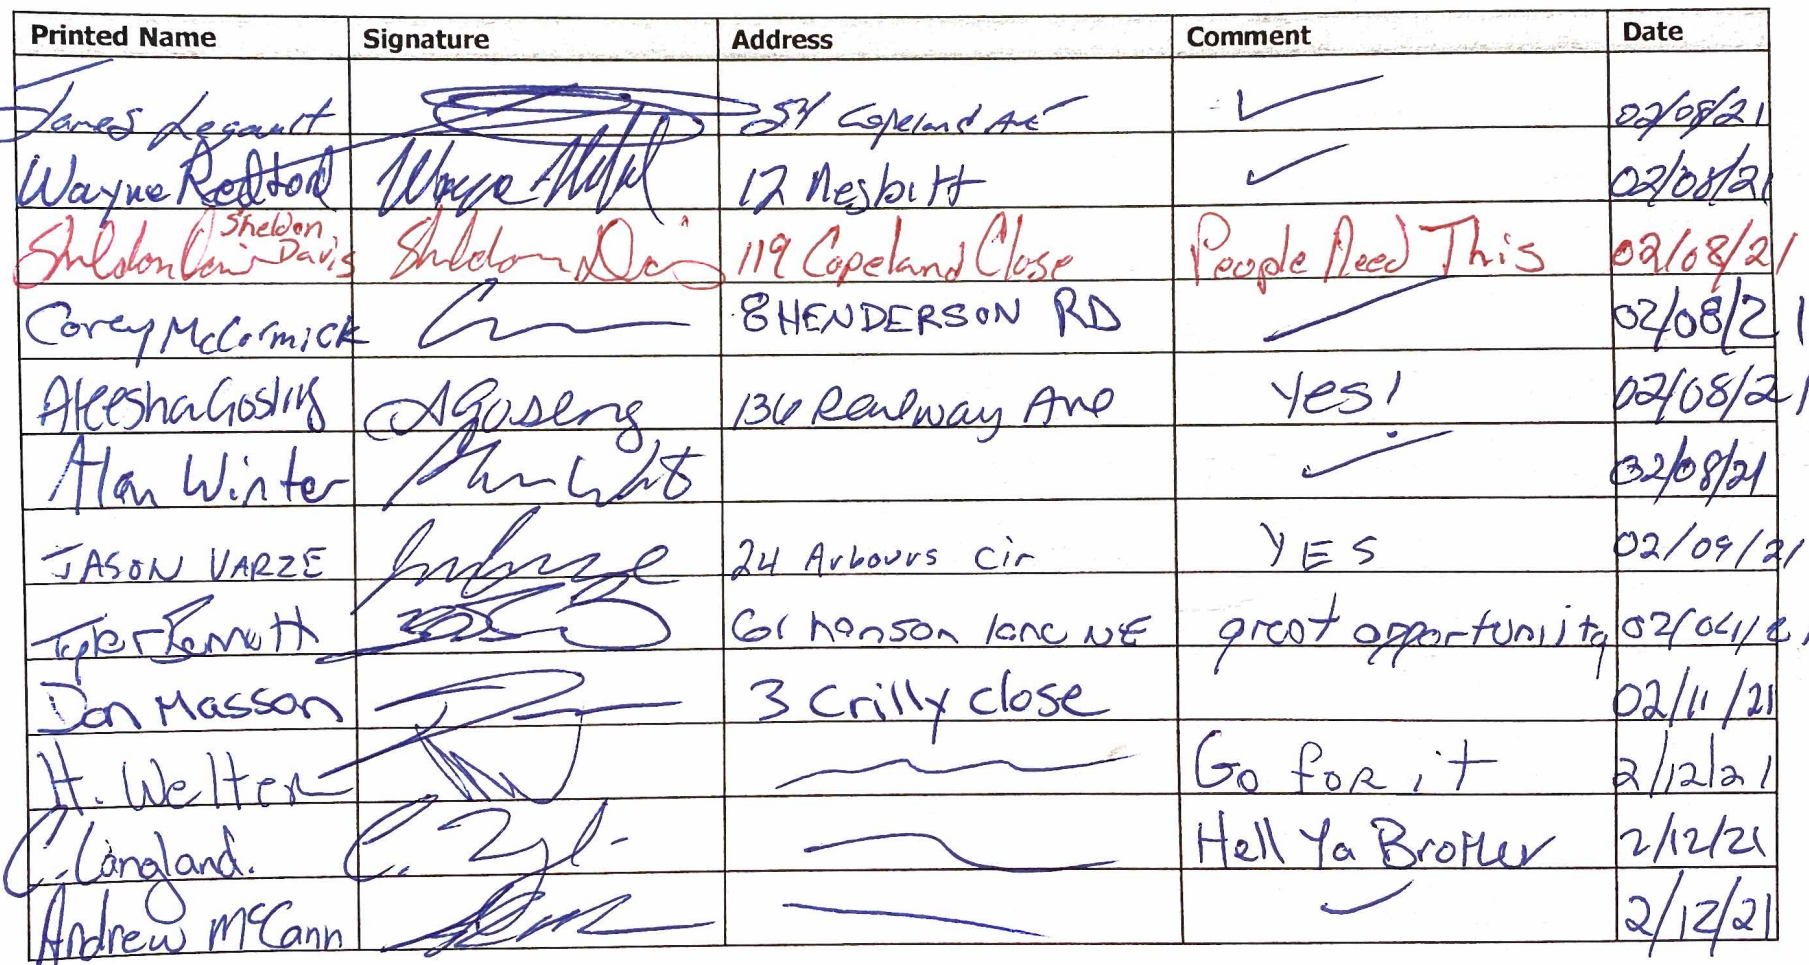 Printed Name Signature Address Comment Date
James Legault 54 Copeland Ave ✓ 02/08/21
Wayne Redford Wayne 12 Nesbitt ✓ 02/08/21
Sheldon Davis Sheldon Davis Sheldon Davis 119 Copeland Close People Need This 02/08/21
Corey McCormick 8 HENDERSON RD 02/08/21
Aleesha Gosling AGosling 136 Railway Ave Yes! 02/08/21
Alan Winter ✓ 02/08/21
JASON VARZE 24 Arbours Cir YES 02/09/21
Tyler Bennett 61 hanson lane NE great opportuniity
Don Masson 3 Crilly close 02/11/21
H. Welter Go foR it 2/12/21
C. Langland. C. Hell Ya Brother 2/12/21
Andrew McCann ✓ 2/12/21